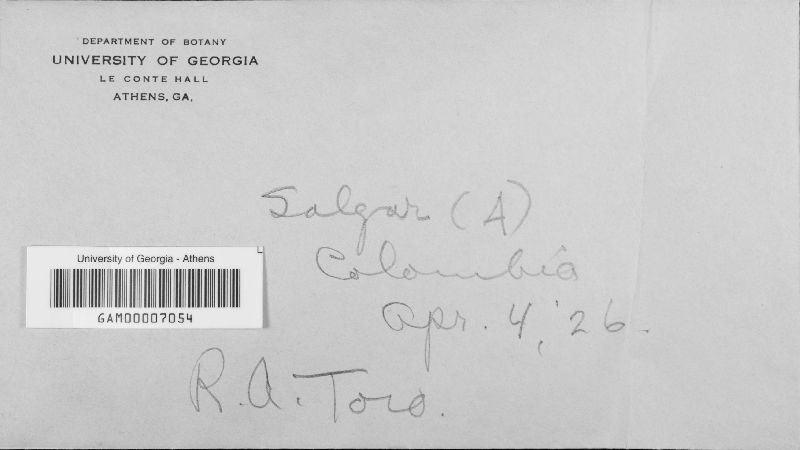 DEPARTMENT OF BOTANY
UNIVERSITY OF GEORGIA
LE CONTE HALL
ATHENS, GA.
Salgar (A)
Colombia
Apr. 4, '26.
R. A. Toro.
University of Georgia - Athens
GAM00007054